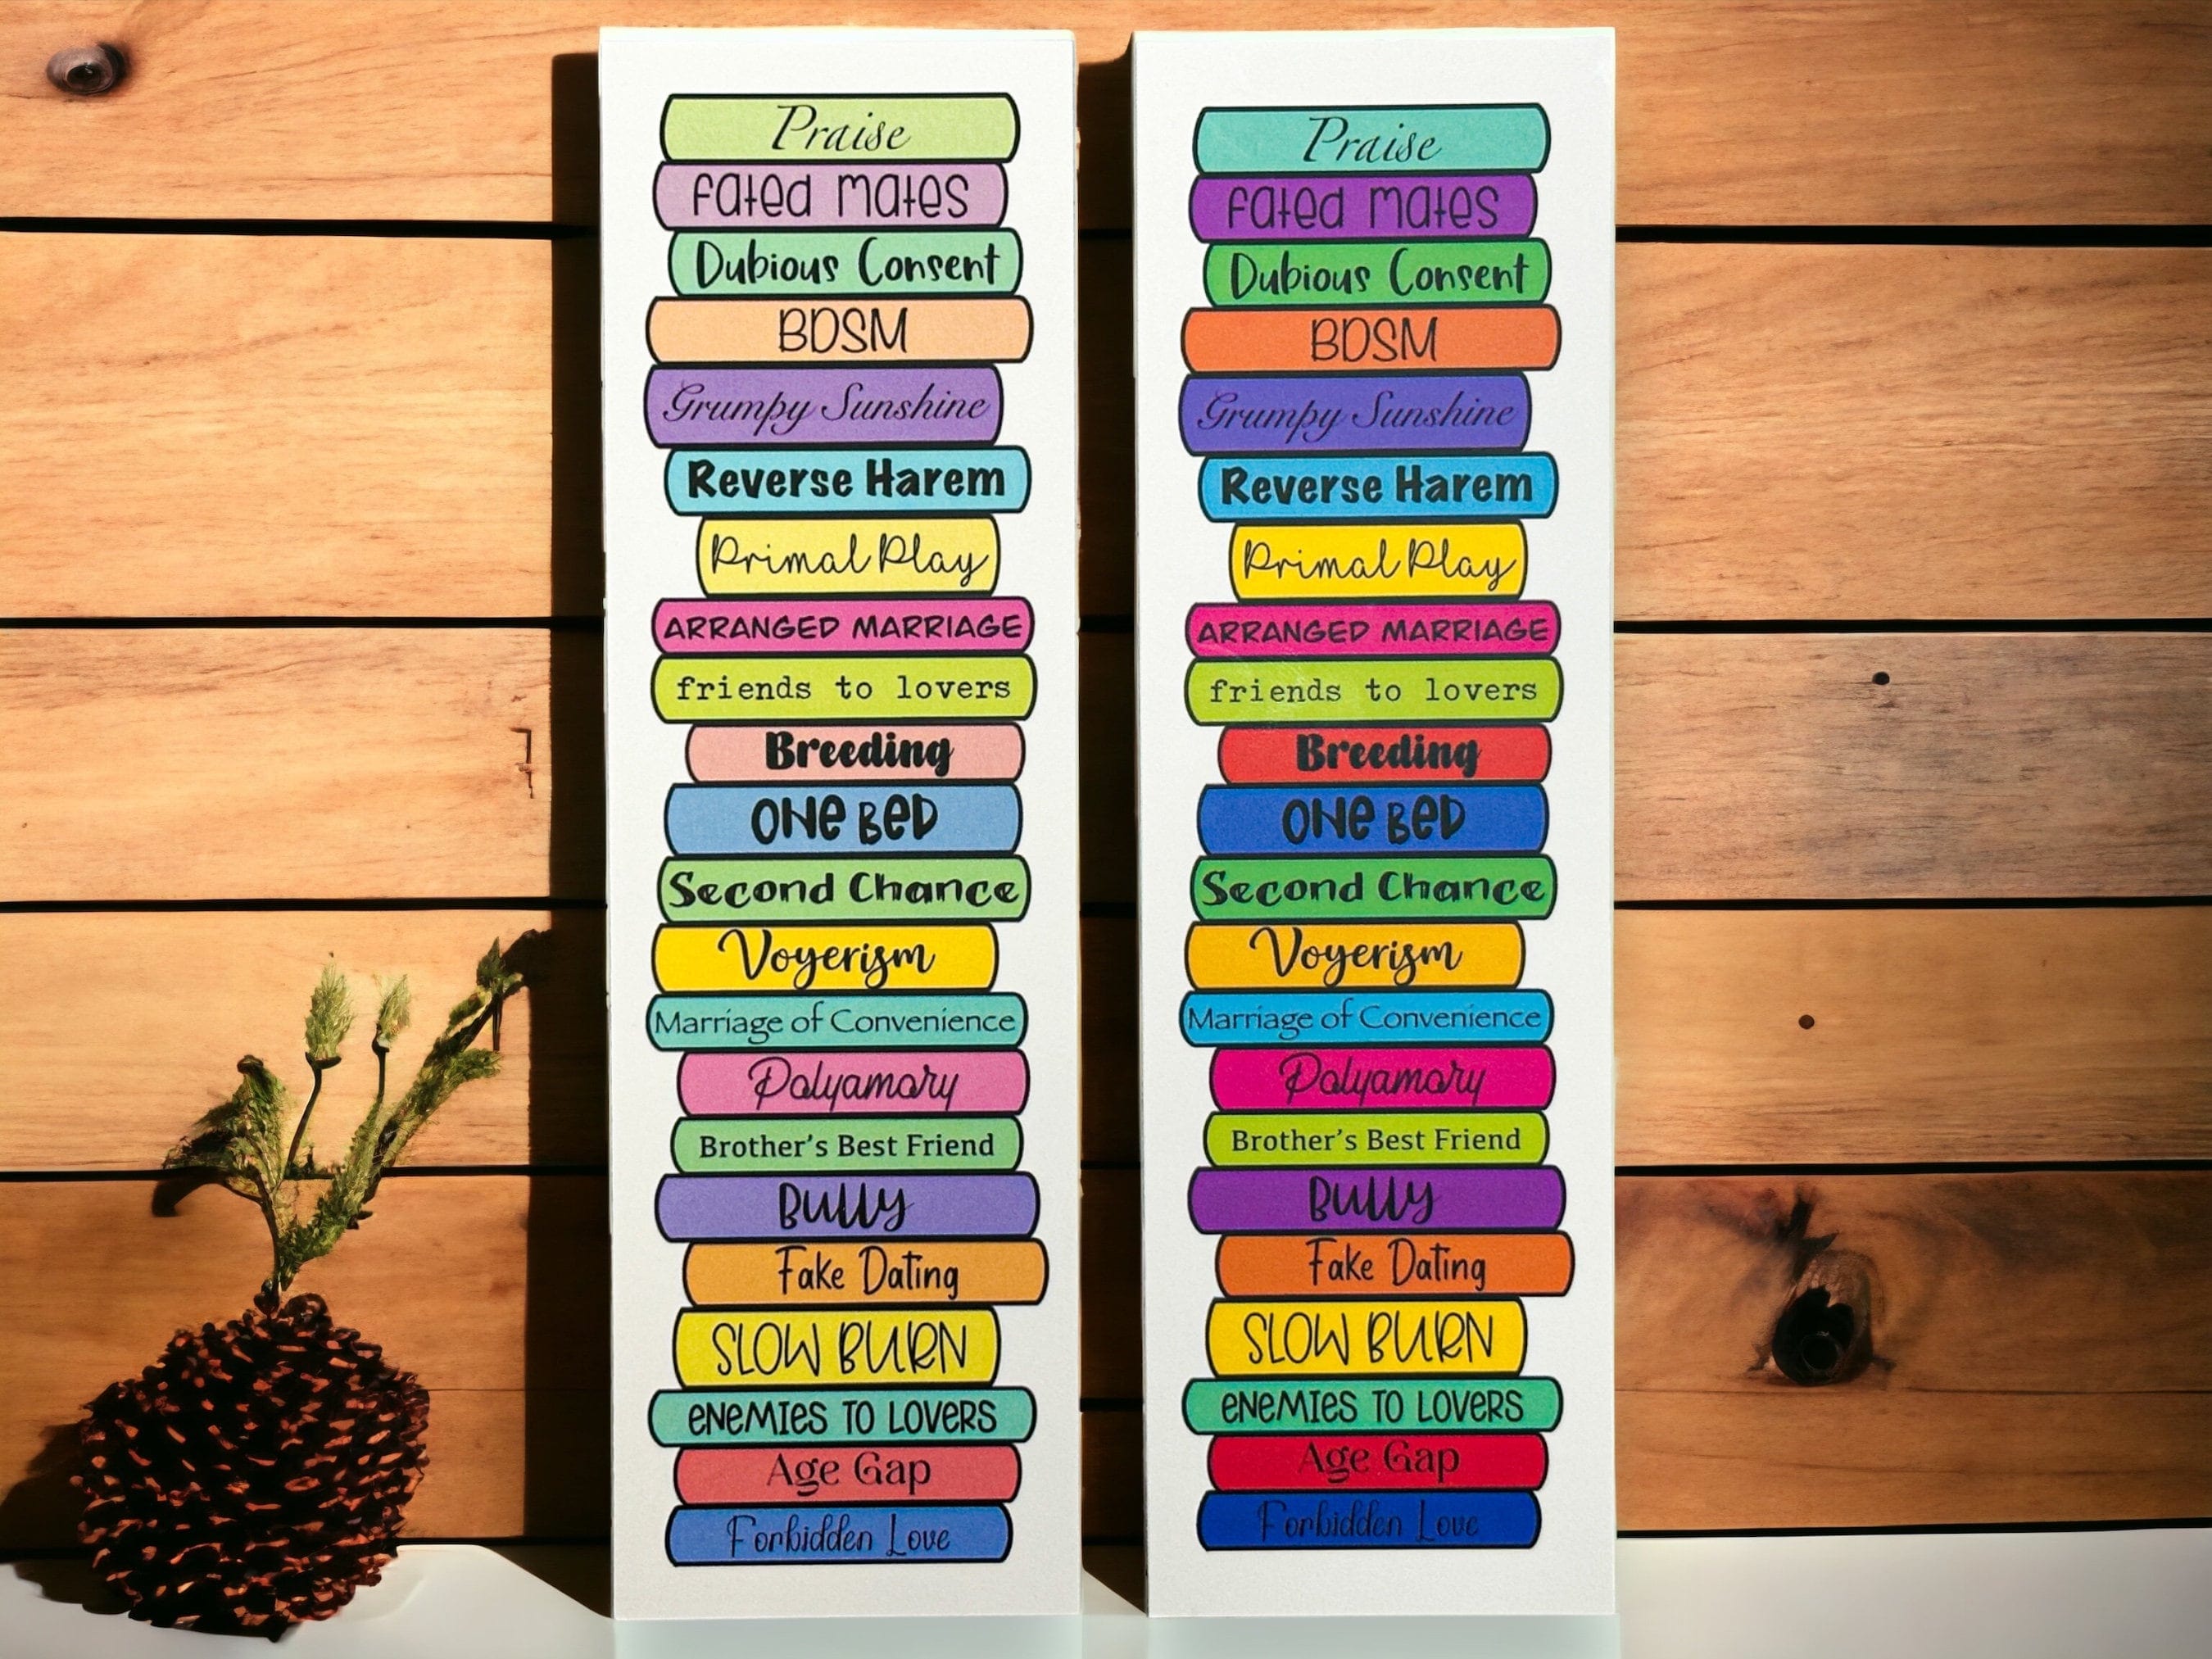 Praise
Fated Mates
Dubious Consent
BDSM
Grumpy Sunshine
Reverse Harem
Primal Play
ARRANGED MARRIAGE
friends to lovers
Breeding
ONE BED
Second Chance
Voyerism
Marriage of Convenience
Polyamory
Brother's Best Friend
Bully
Fake Dating
SLOW BURN
ENEMIES TO LOVERS
Age Gap
Forbidden Love
Praise
Fated Mates
Dubious Consent
BDSM
Grumpy Sunshine
Reverse Harem
Primal Play
ARRANGED MARRIAGE
friends to lovers
Breeding
ONE BED
Second Chance
Voyerism
Marriage of Convenience
Polyamory
Brother's Best Friend
Bully
Fake Dating
SLOW BURN
ENEMIES TO LOVERS
Age Gap
Forbidden Love